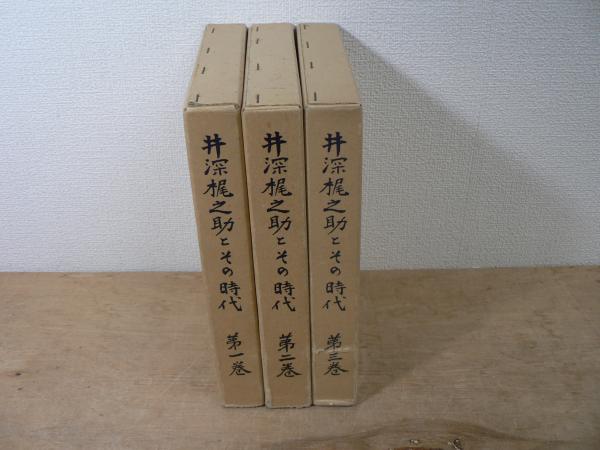 井深梶之助とその時代 第一巻
井深梶之助とその時代 第二巻
井深梶之助とその時代 第三巻